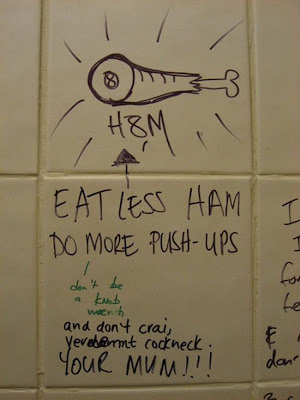 8
H8M
EAT LESS HAM
DO MORE PUSH-UPS
don't be
a knob
and don't crai,
cockneck.
YOUR MUM!!!
I
I
fo
te
&
don'